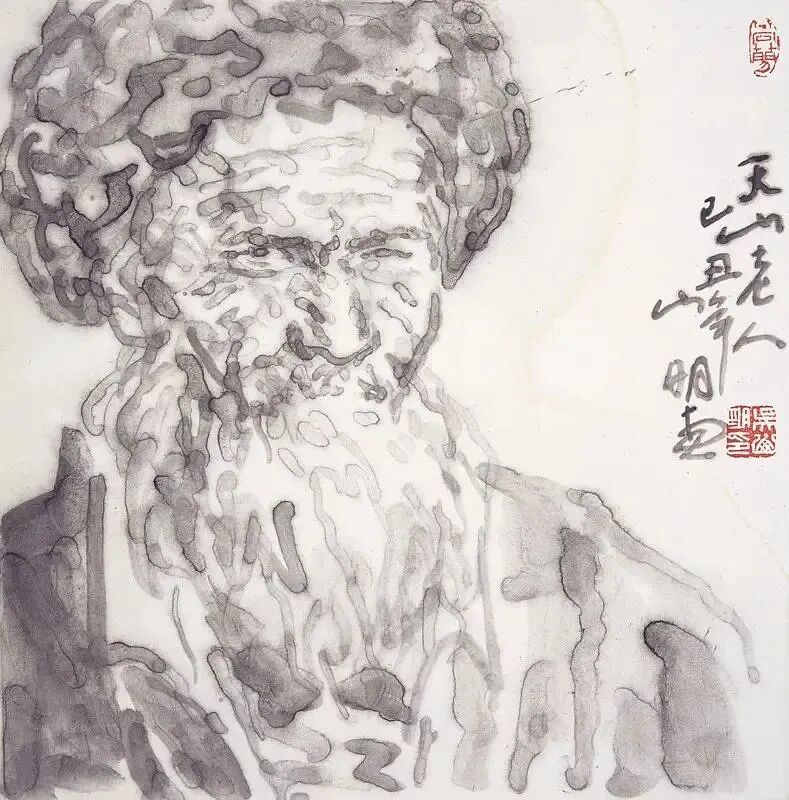 天山老人
己丑年
山明画
吴山明印